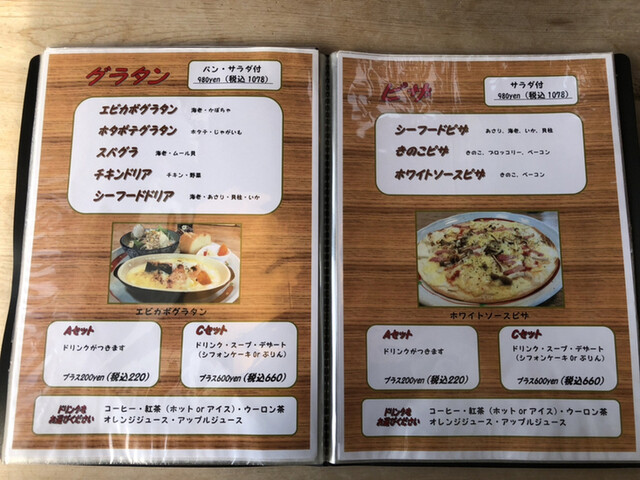 グラタン
パン・サラダ付
980yen（税込1078）
エビカボグラタン 海老・かぼちゃ
ホタポテグラタン ホタテ・じゃがいも
スパグラ 海老・ムール貝
チキンドリア チキン・野菜
シーフードドリア 海老・あさり・貝柱・いか
エビカボグラタン
Aセット
ドリンクがつきます
プラス200yen（税込220）
Cセット
ドリンク・スープ・デザート
（シフォンケーキorぷりん）
プラス600yen（税込660）
ドリンクを
お選びください
コーヒー・紅茶（ホットorアイス）・ウーロン茶
オレンジジュース・アップルジュース
ピザ
サラダ付
980yen（税込1078）
シーフードピザ あさり、海老、いか、貝柱
きのこピザ きのこ、ブロッコリー、ベーコン
ホワイトソースピザ きのこ、ベーコン
ホワイトソースピザ
Aセット
ドリンクがつきます
プラス200yen（税込220）
Cセット
ドリンク・スープ・デザート
（シフォンケーキorぷりん）
プラス600yen（税込660）
ドリンクを
お選びください
コーヒー・紅茶（ホットorアイス）・ウーロン茶
オレンジジュース・アップルジュース